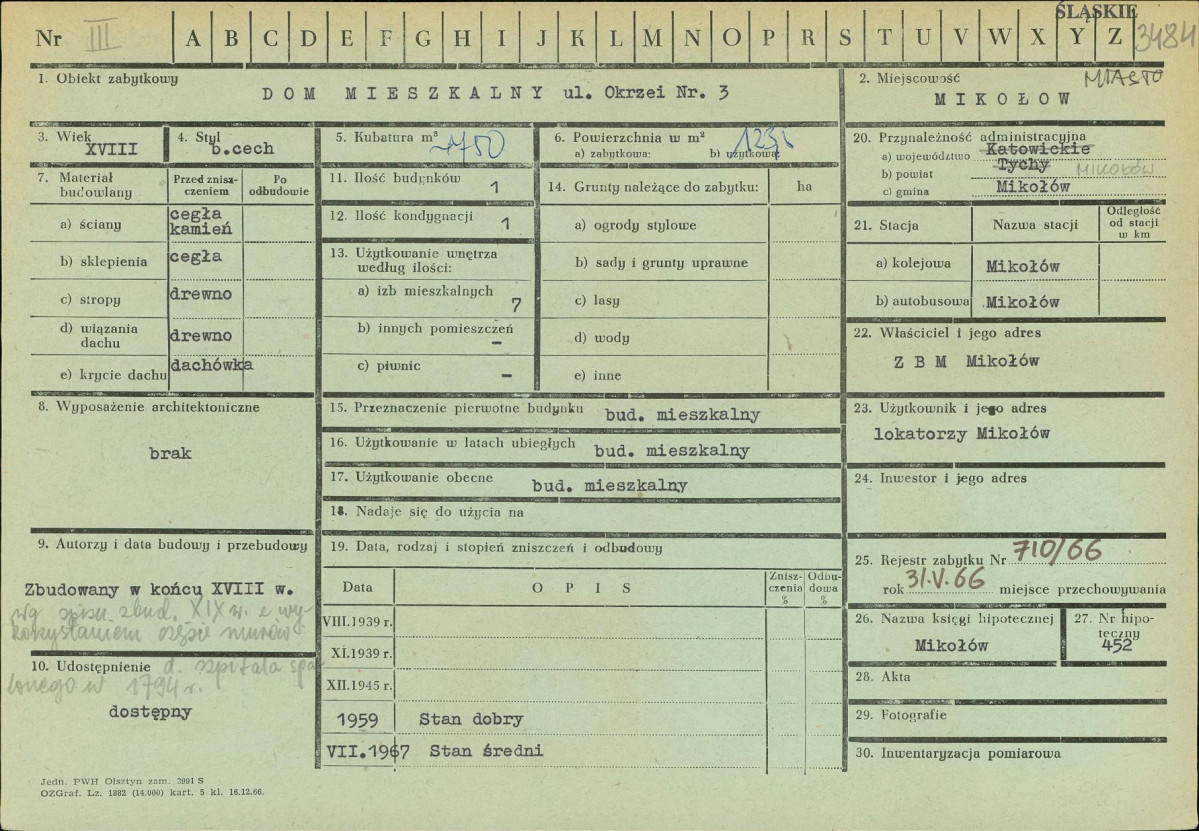 ŚLĄSKIE
Nr III A B C D E F G H I J K L M N O P R S T U V W X Y Z 3484
1. Obiekt zabytkowy
DOM MIESZKALNY ul. Okrzei Nr. 3
2. Miejscowość MIASTO
MIKOŁOW
3. Wiek
XVIII
4. Styl
b.cech
5. Kubatura m³
6. Powierzchnia w m²
a) zabytkowa: b) użytkowa:
20. Przynależność administracyjna
a) województwo Katowickie
b) powiat Tychy MIKOŁÓW
c) gmina Mikołów
7. Materiał budowlany
Przed zniszczeniem
Po odbudowie
a) ściany cegła kamień
b) sklepienia cegła
c) stropy drewno
d) wiązania dachu drewno
e) krycie dachu dachówka
11. Ilość budynków 1
12. Ilość kondygnacji 1
13. Użytkowanie wnętrza według ilości:
a) izb mieszkalnych 7
b) innych pomieszczeń –
c) piwnic –
14. Grunty należące do zabytku: ha
a) ogrody stylowe
b) sady i grunty uprawne
c) lasy
d) wody
e) inne
21. Stacja
Nazwa stacji
Odległość od stacji w km
a) kolejowa Mikołów
b) autobusowa Mikołów
22. Właściciel i jego adres
Z B M Mikołów
8. Wyposażenie architektoniczne
brak
15. Przeznaczenie pierwotne budynku bud. mieszkalny
16. Użytkowanie w latach ubiegłych bud. mieszkalny
17. Użytkowanie obecne bud. mieszkalny
18. Nadaje się do użycia na
23. Użytkownik i jego adres
lokatorzy Mikołów
24. Inwestor i jego adres
9. Autorzy i data budowy i przebudowy
Zbudowany w końcu XVIII w.
wg opisu zbud. XIX w. z wy-
korzystaniem części murów
10. Udostępnienie d. szpitala spa-
lonego w 1794 r.
dostępny
19. Data, rodzaj i stopień zniszczeń i odbudowy
Data
OPIS
Zniszczenia %
Odbudowa %
VIII.1939 r.
XI.1939 r.
XII.1945 r.
1959 Stan dobry
VII.1967 Stan średni
25. Rejestr zabytku Nr 710/66
rok 31.V.66 miejsce przechowywania
26. Nazwa księgi hipotecznej
Mikołów
27. Nr hipoteczny
452
28. Akta
29. Fotografie
30. Inwentaryzacja pomiarowa
Jedn. PWH Olsztyn zam. 3991 S
OZGraf. Lz. 1882 (14.000) kart. 5 kl. 16.12.66.